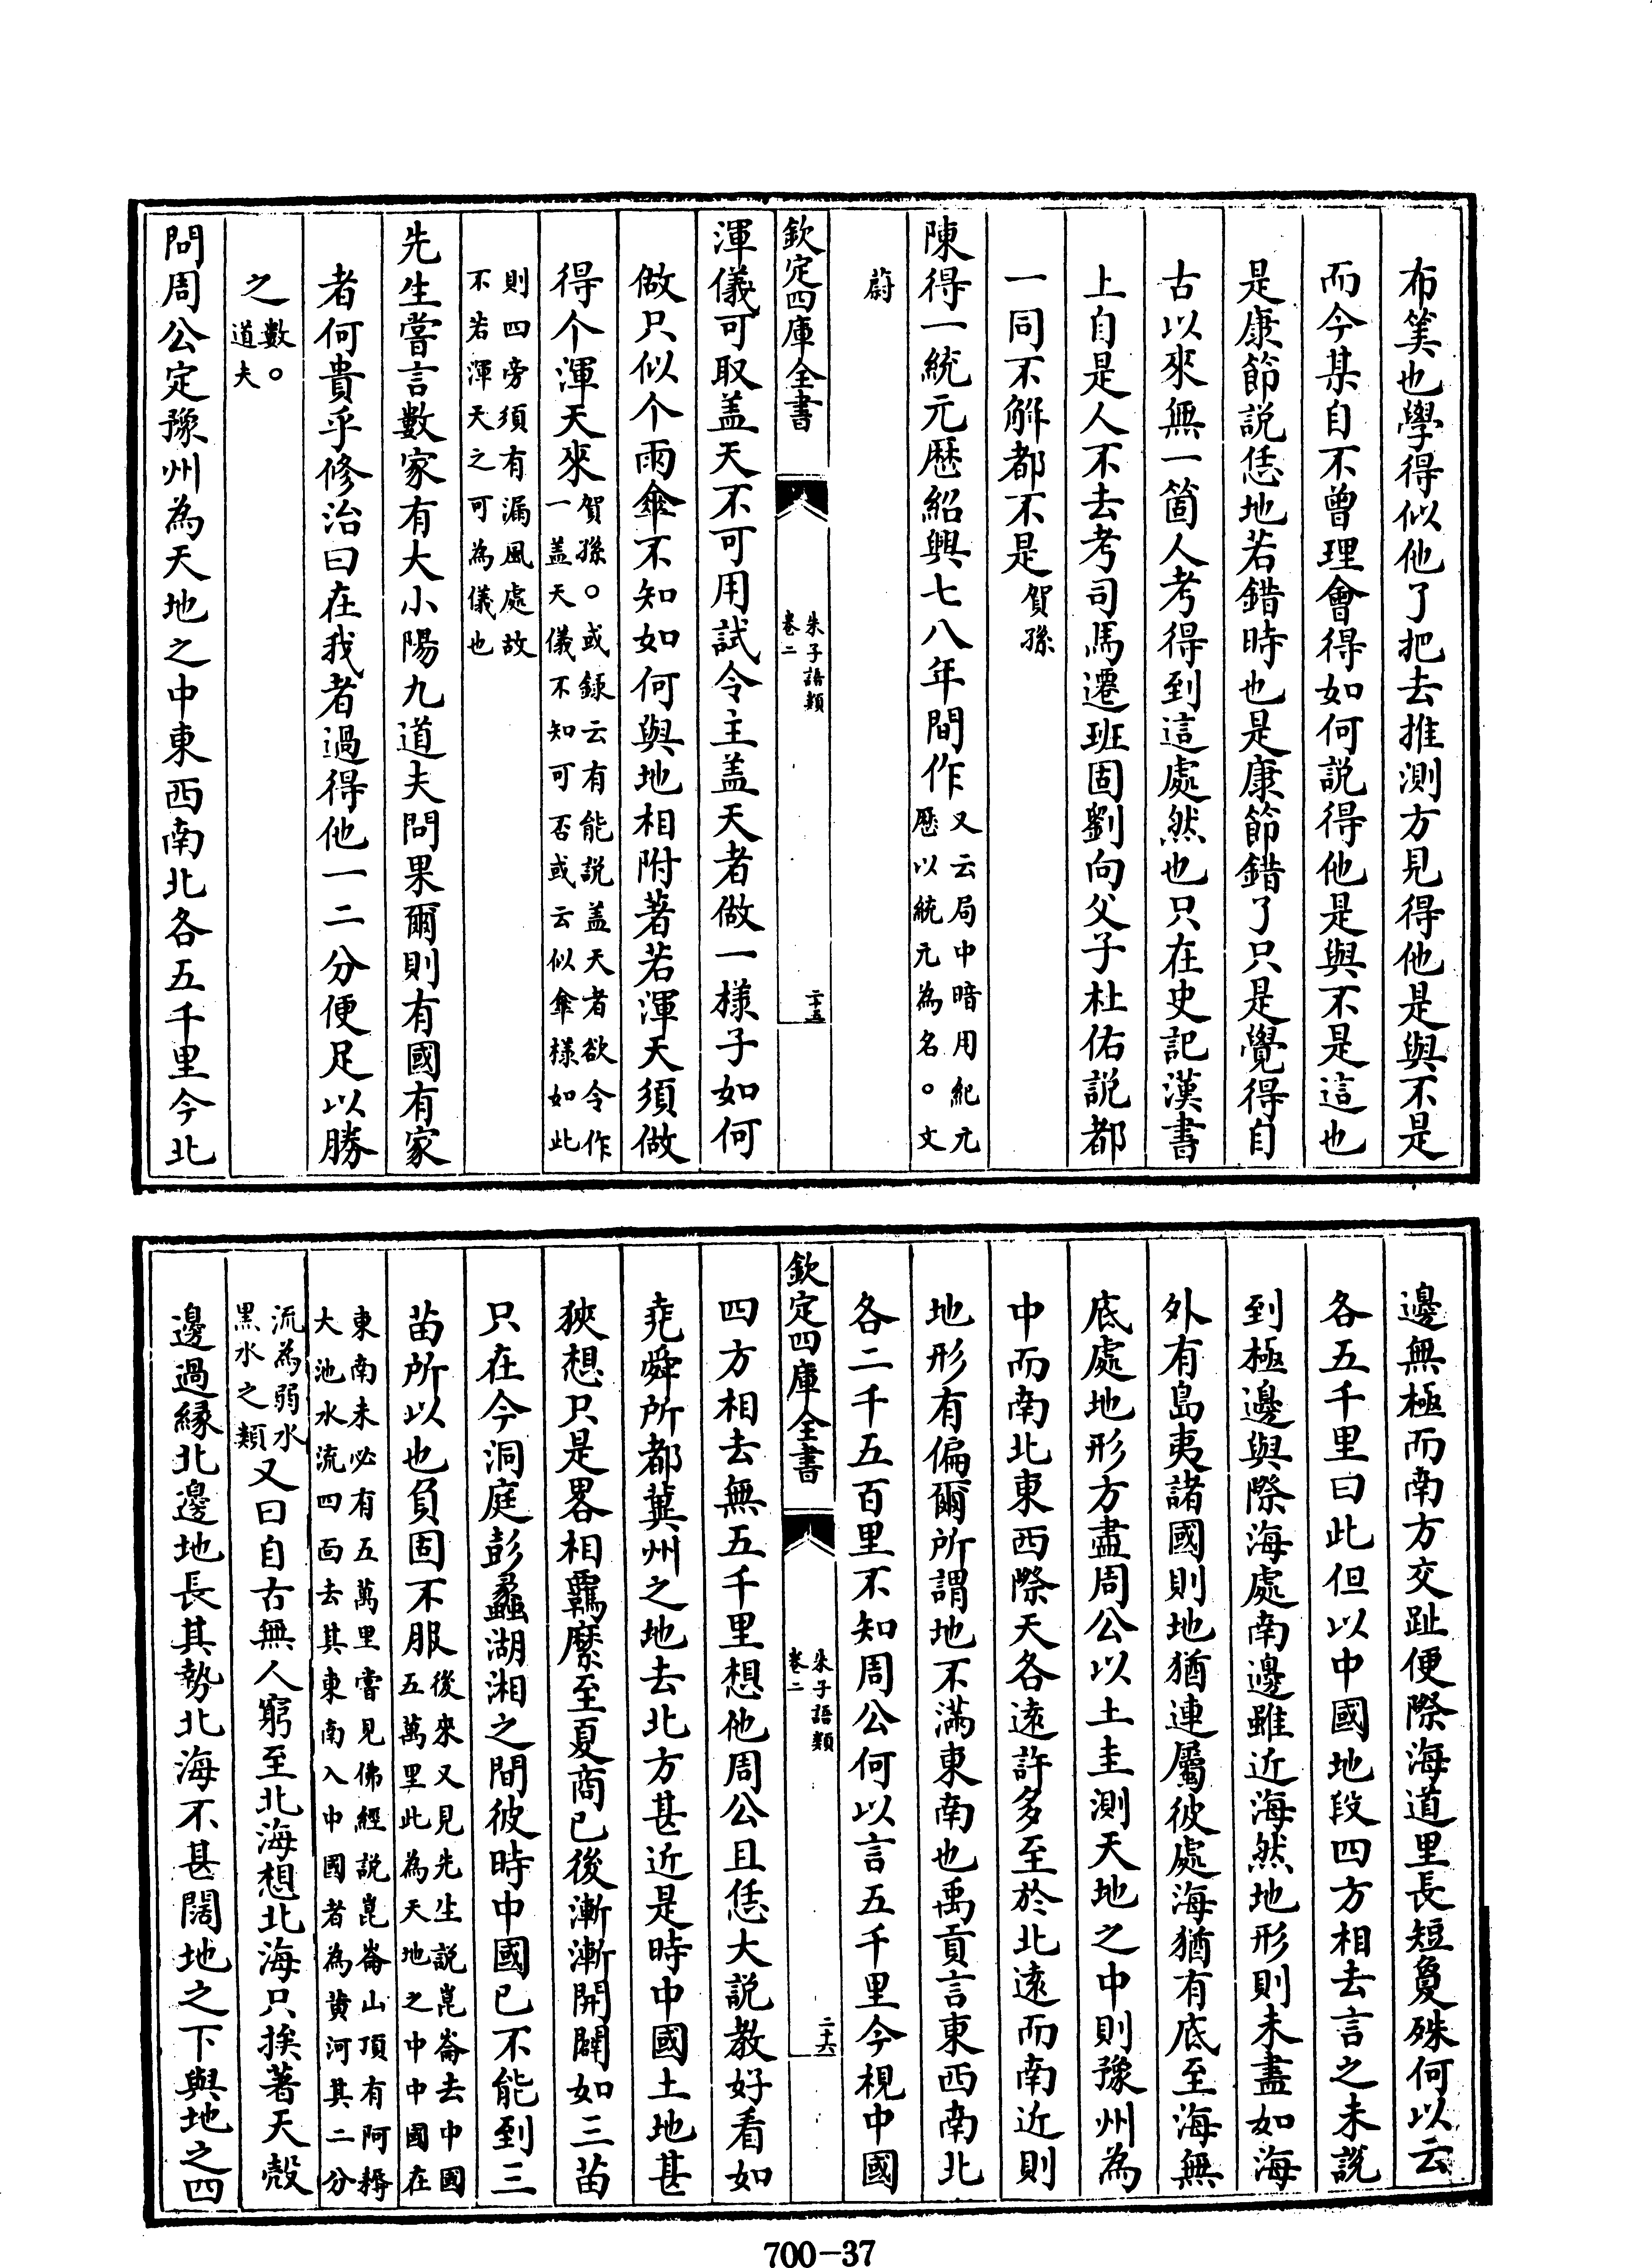 布筭也學得似他了把去推測方見得他是與不是
而今某自不曾理會得如何說得他是與不是這也
是康節説恁地若錯時也是康節錯了只是覺得自
古以來無一箇人考得到這處然也只在史記漢書
上自是人不去考司馬遷班固劉向父子杜佑説都
一同不解都不是賀孫
陳得一統元厯紹興七八年間作又云局中暗用紀元
厯以統元為名。文
蔚
欽定四庫全書
朱子語類
卷二
二十五
渾儀可取盖天不可用試令主盖天者做一様子如何
做只似个雨傘不知如何與地相附著若渾天須做
得个渾天來賀孫。或録云有能説盖天者欲令作
一盖天儀不知可否或云似傘様如此
則四旁須有漏風處故
不若渾天之可為儀也
先生嘗言數家有大小陽九道夫問果爾則有國有家
者何貴乎修治曰在我者過得他一二分便足以勝
之數。
道夫
問周公定豫州為天地之中東西南北各五千里今北
邊無極而南方交趾便際海道里長短夐殊何以云
各五千里曰此但以中國地段四方相去言之未説
到極邊與際海處南邊雖近海然地形則未盡如海
外有島夷諸國則地猶連屬彼處海猶有底至海無
底處地形方盡周公以土圭測天地之中則豫州為
中而南北東西際天各逺許多至於北逺而南近則
地形有偏爾所謂地不滿東南也禹貢言東西南北
各二千五百里不知周公何以言五千里今視中國
欽定四庫全書
朱子語類
卷二
二十六
四方相去無五千里想他周公且恁大説教好看如
堯舜所都冀州之地去北方甚近是時中國土地甚
狹想只是畧相羈縻至夏商已後漸漸開闢如三苗
只在今洞庭彭蠡湖湘之間彼時中國已不能到三
苗所以也負固不服後來又見先生説崑崙去中國
五萬里此為天地之中中國在
東南未必有五萬里嘗見佛經説崑崙山頂有阿耨
大池水流四面去其東南入中國者為黄河其二分
流為弱水
黒水之類又曰自古無人窮至北海想北海只挨著天殻
邊過緣北邊地長其勢北海不甚闊地之下與地之四
700-37